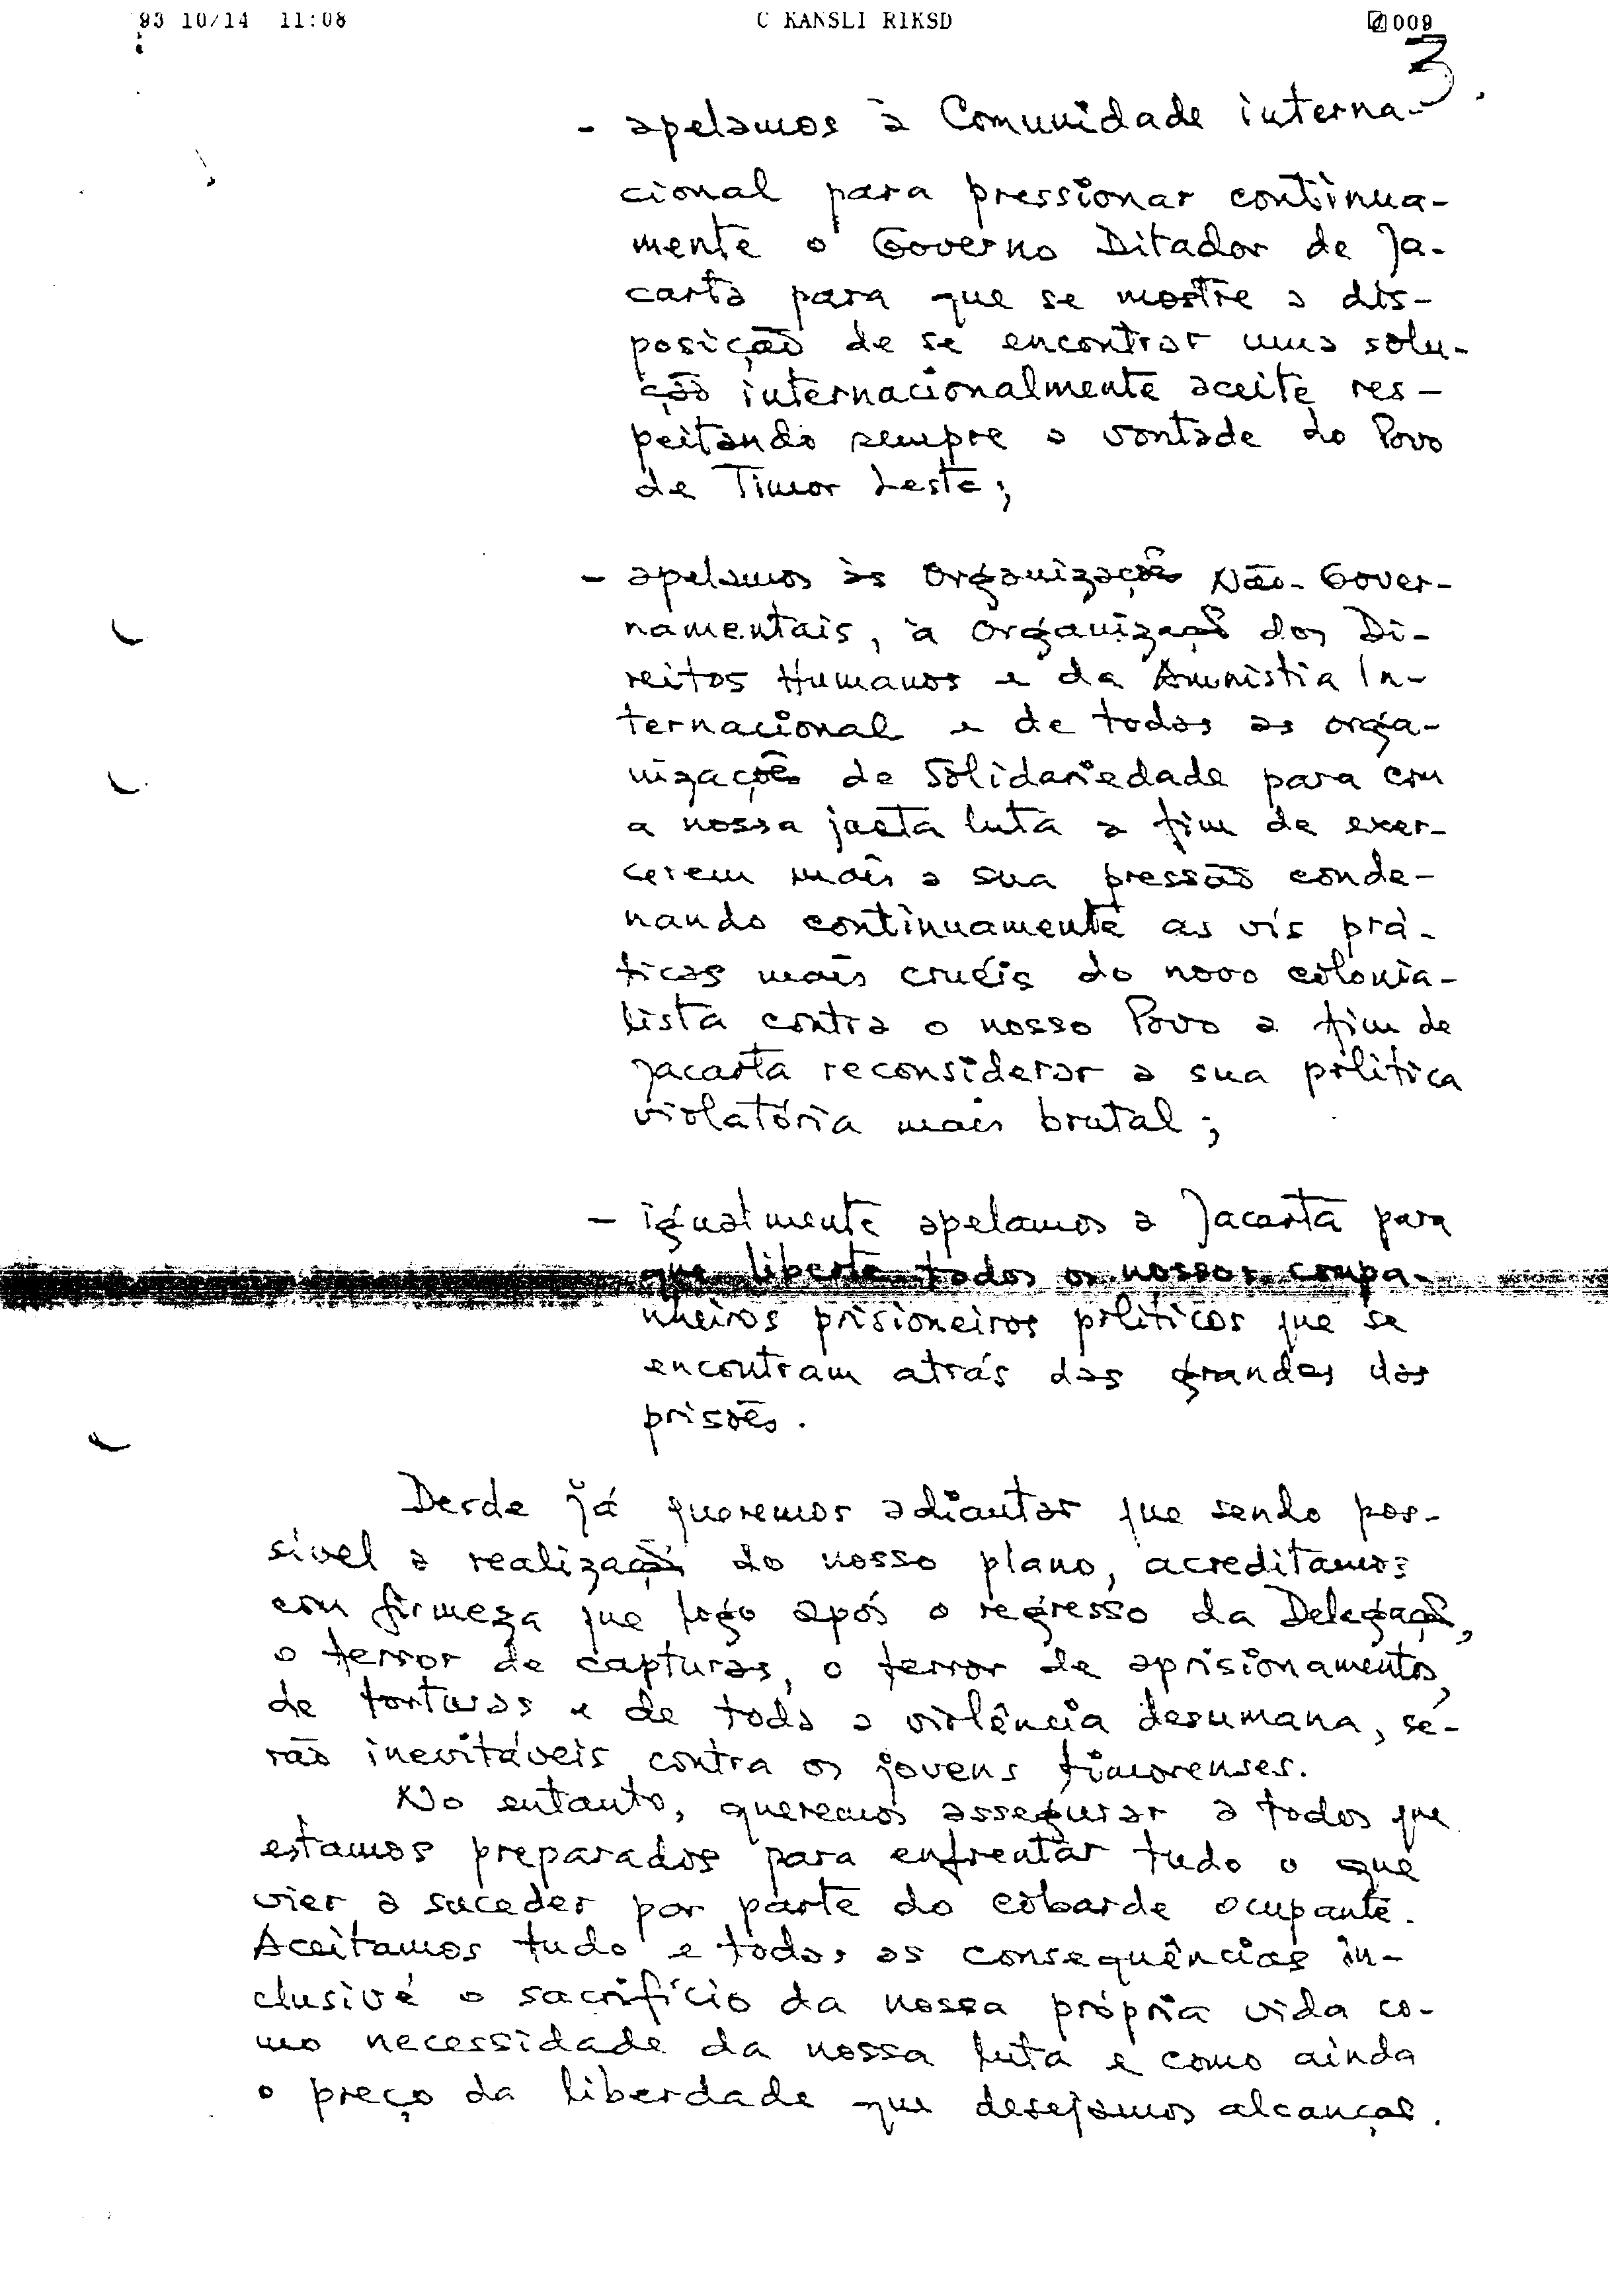 93 10/14 11:08 C KANSLI RIKSD 009
3.
- apelamos à Comunidade interna-
cional para pressionar continua-
mente o Governo Ditador de Ja-
carta para que se mostre a dis-
posição de se encontrar uma solu-
ção internacionalmente aceite res-
peitando sempre a vontade do Povo
de Timor Leste;
- apelamos às Organizações Não-Gover-
namentais, à Organização dos Di-
reitos Humanos e da Amnistia In-
ternacional e de todas as orga-
nizações de Solidariedade para com
a nossa justa luta a fim de exer-
cerem mais a sua pressão conde-
nando continuamente as vís prá-
ticas mais cruéis do novo colonia-
lista contra o nosso Povo a fim de
Jacarta reconsiderar a sua política
violatória mais brutal;
- igualmente apelamos a Jacarta para
que liberte todos os nossos compa-
nheiros prisioneiros políticos que se
encontram atrás das grandes das
prisões.
Desde já queremos adiantar que sendo pos-
sível a realização do nosso plano, acreditamos
com firmeza que logo após o regresso da Delegação,
o terror de capturas, o terror de aprisionamentos,
de torturas e de toda a violência desumana, se-
rão inevitáveis contra os jovens timorenses.
No entanto, queremos assegurar a todos que
estamos preparados para enfrentar tudo o que
vier a suceder por parte do cobarde ocupante.
Aceitamos tudo e todas as consequências in-
clusivé o sacrifício da nossa própria vida co-
mo necessidade da nossa luta e como ainda
o preço da liberdade que desejamos alcançar.